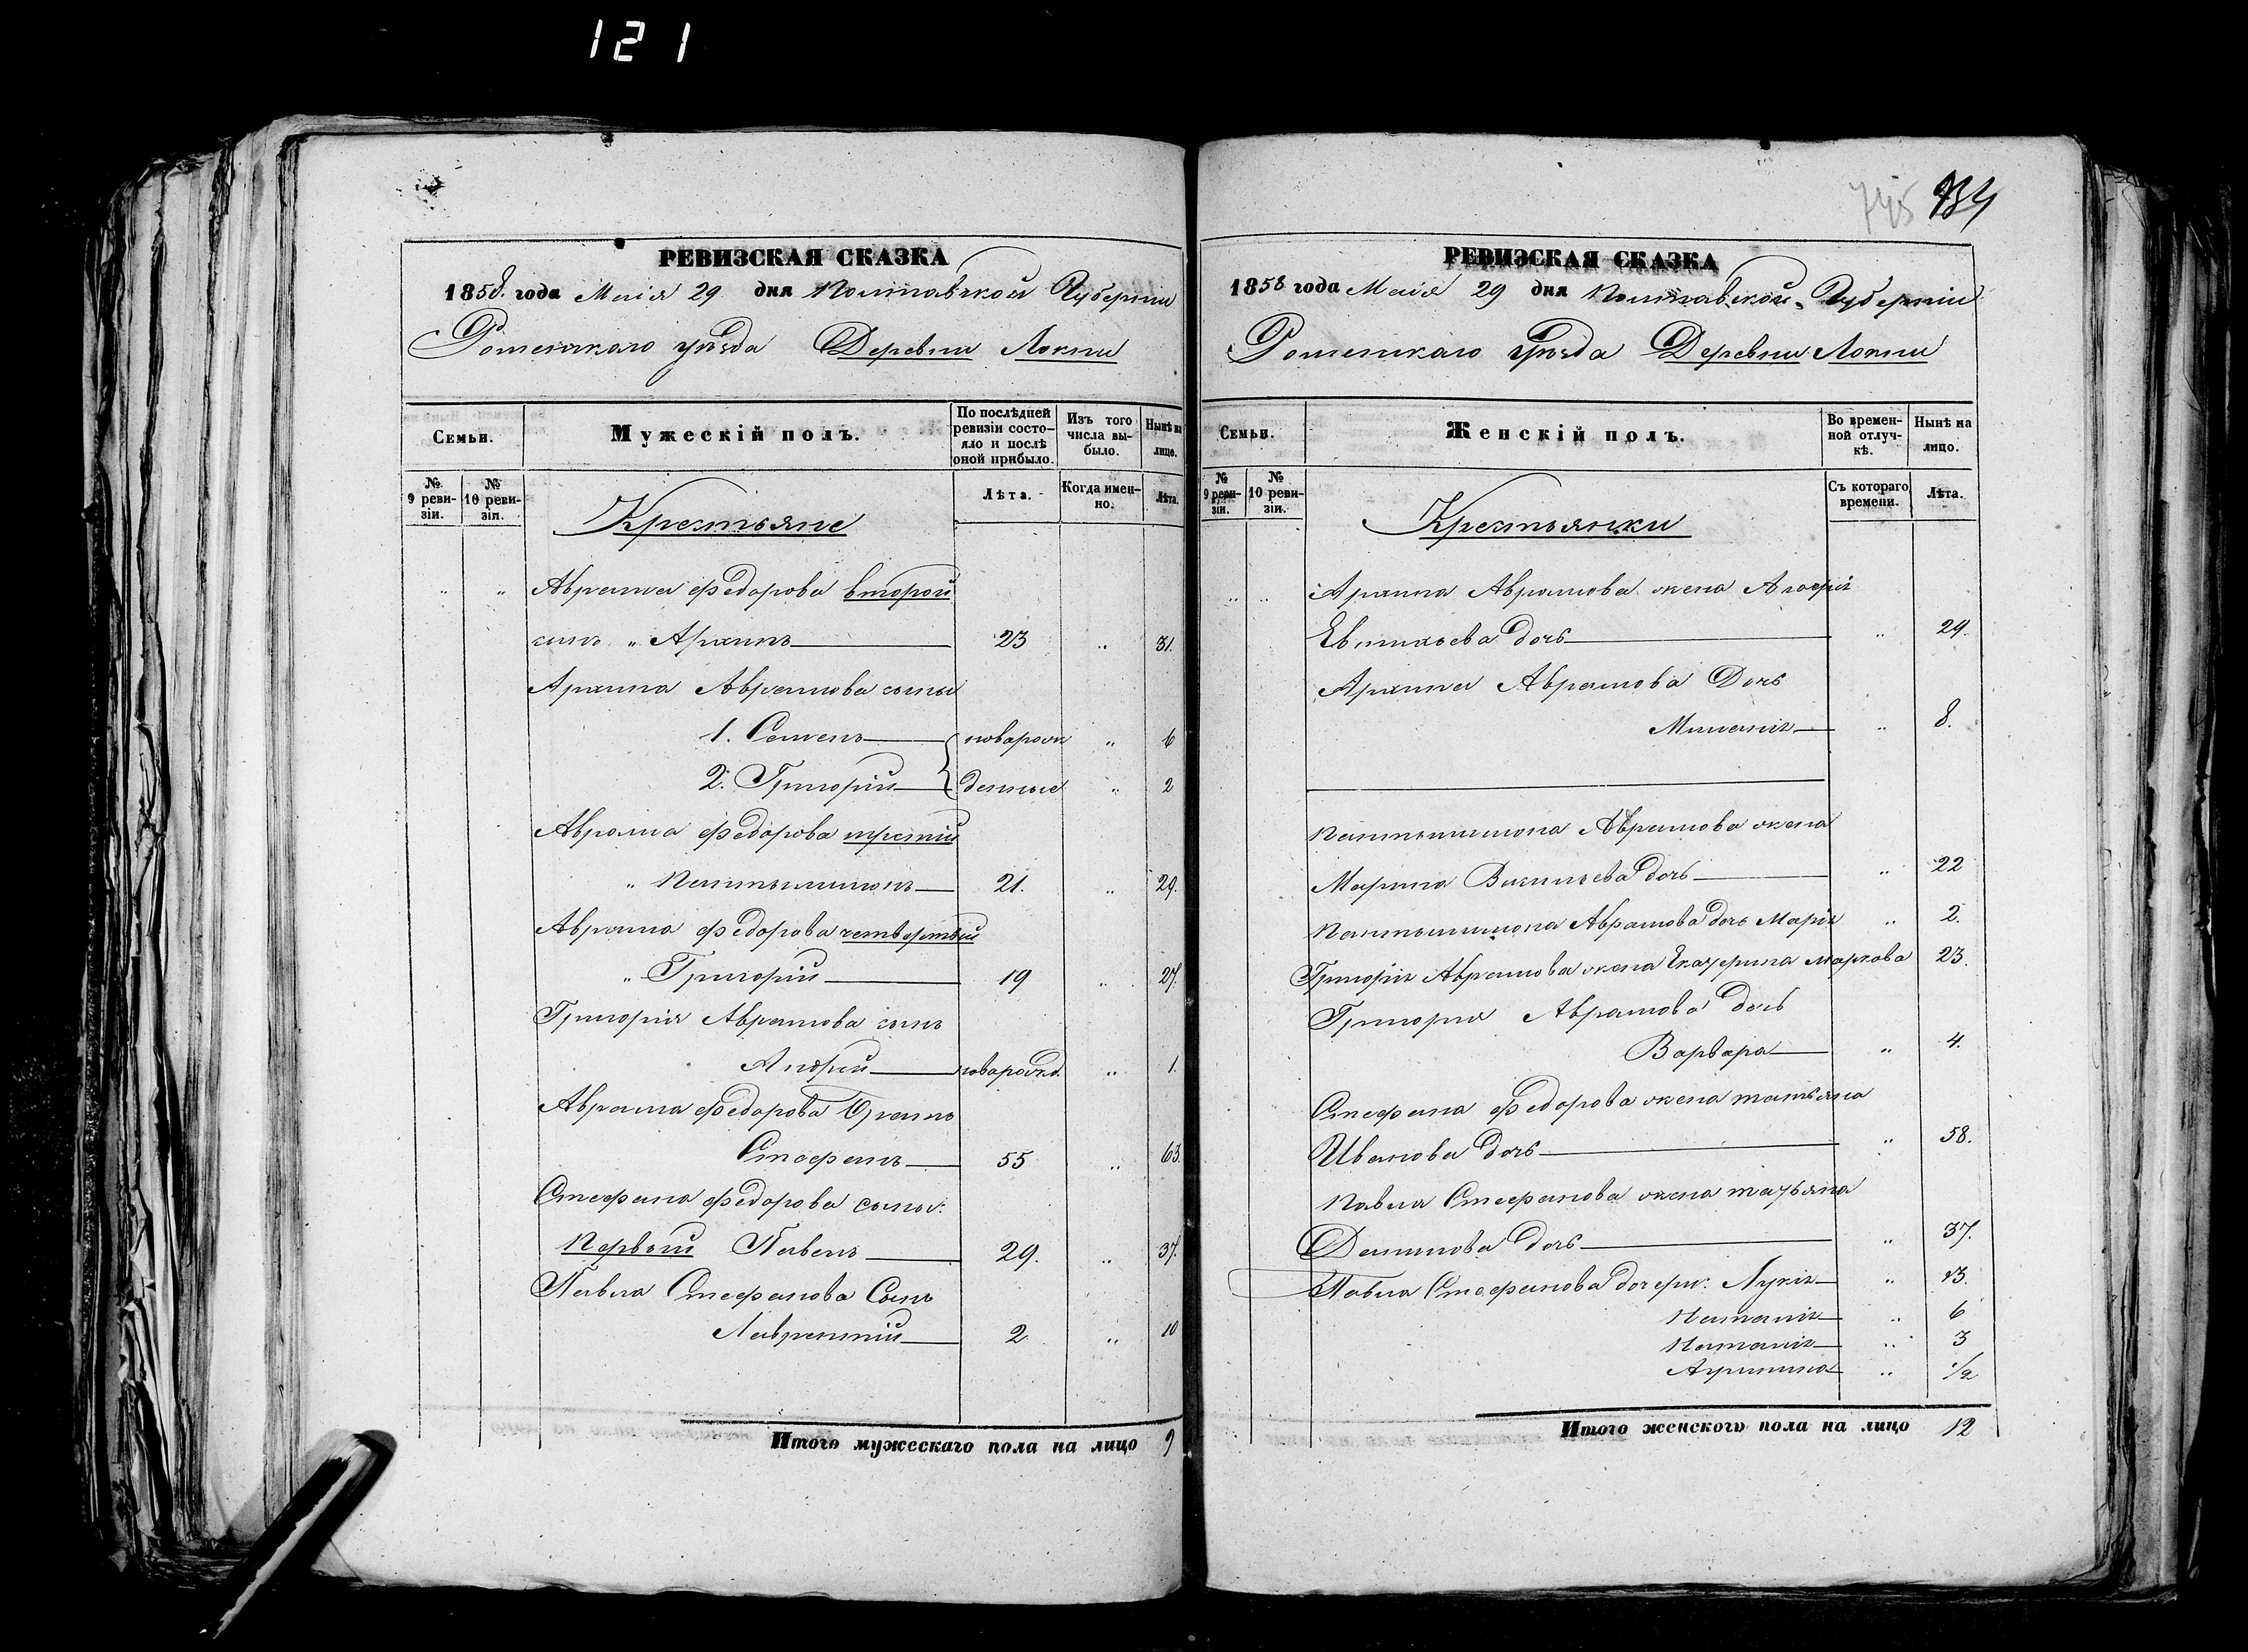 121
РЕВИЗСКАЯ СКАЗКА
1858. года Маія 29 дня Полтавской Губерніи
Роменскаго уѣзда Деревни Локни
Семьи.
Мужескій полъ.
По послѣдней ревизіи состояло и послѣ оной прибыло.
Изъ того числа выбыло.
Нынѣ на лицо.
№ 9 ревизіи.
№ 10 ревизіи.
Крестьяне
Лѣта.
Когда именно.
Лѣта.
" " Аврама Федорова второй
сынъ " Архипъ 23 " 31.
Архипа Аврамова сыны
1. Семенъ новарож " 6
2. Григорій денные " 2
Аврама Федорова третій
" Пантелимонъ 21. " 29.
Аврама Федорова четвертый
" Григорій 19 " 27.
Григорія Аврамова сынъ
Андрей новарожд. " 1.
Аврама Федорова Братъ
Стефанъ 55 " 63.
Стефана Федорова сыны:
Первый Павелъ 29. " 37.
Павла Стефанова Сынъ
Лаврентій 2 " 10
Итого мужескаго пола на лицо 9
745 734
РЕВИЗСКАЯ СКАЗКА
1858 года Маія 29 дня Полтавской Губерніи
Роменскаго Уѣзда Деревни Локни
Семьи.
Женскій полъ.
Во временной отлучкѣ.
Нынѣ на лицо.
№ 9 ревизіи.
№ 10 ревизіи.
Крестьянки
Съ котораго времени.
Лѣта.
" " Архипа Аврамова жена Агафія
Евтихьева дочь " 29.
Архипа Аврамова Дочь
Миланія " 8.
Пантелимона Аврамова жена
Марина Васильева дочь " 22
Пантелимона Аврамова дочь Марія " 2.
Григорія Аврамова жена Екатерина Маркова 23.
Григорія Аврамова дочь
Варвара " 4.
Стефана Федорова жена татьяна
Иванова дочь " 58.
Павла Стефанова жена татьяна
Данилова дочь " 37.
Павла Стефанова дочери: Лукія " 13.
Наталія " 6
Наталія " 3
Акулина " 1/2
Итого женского пола на лицо 12